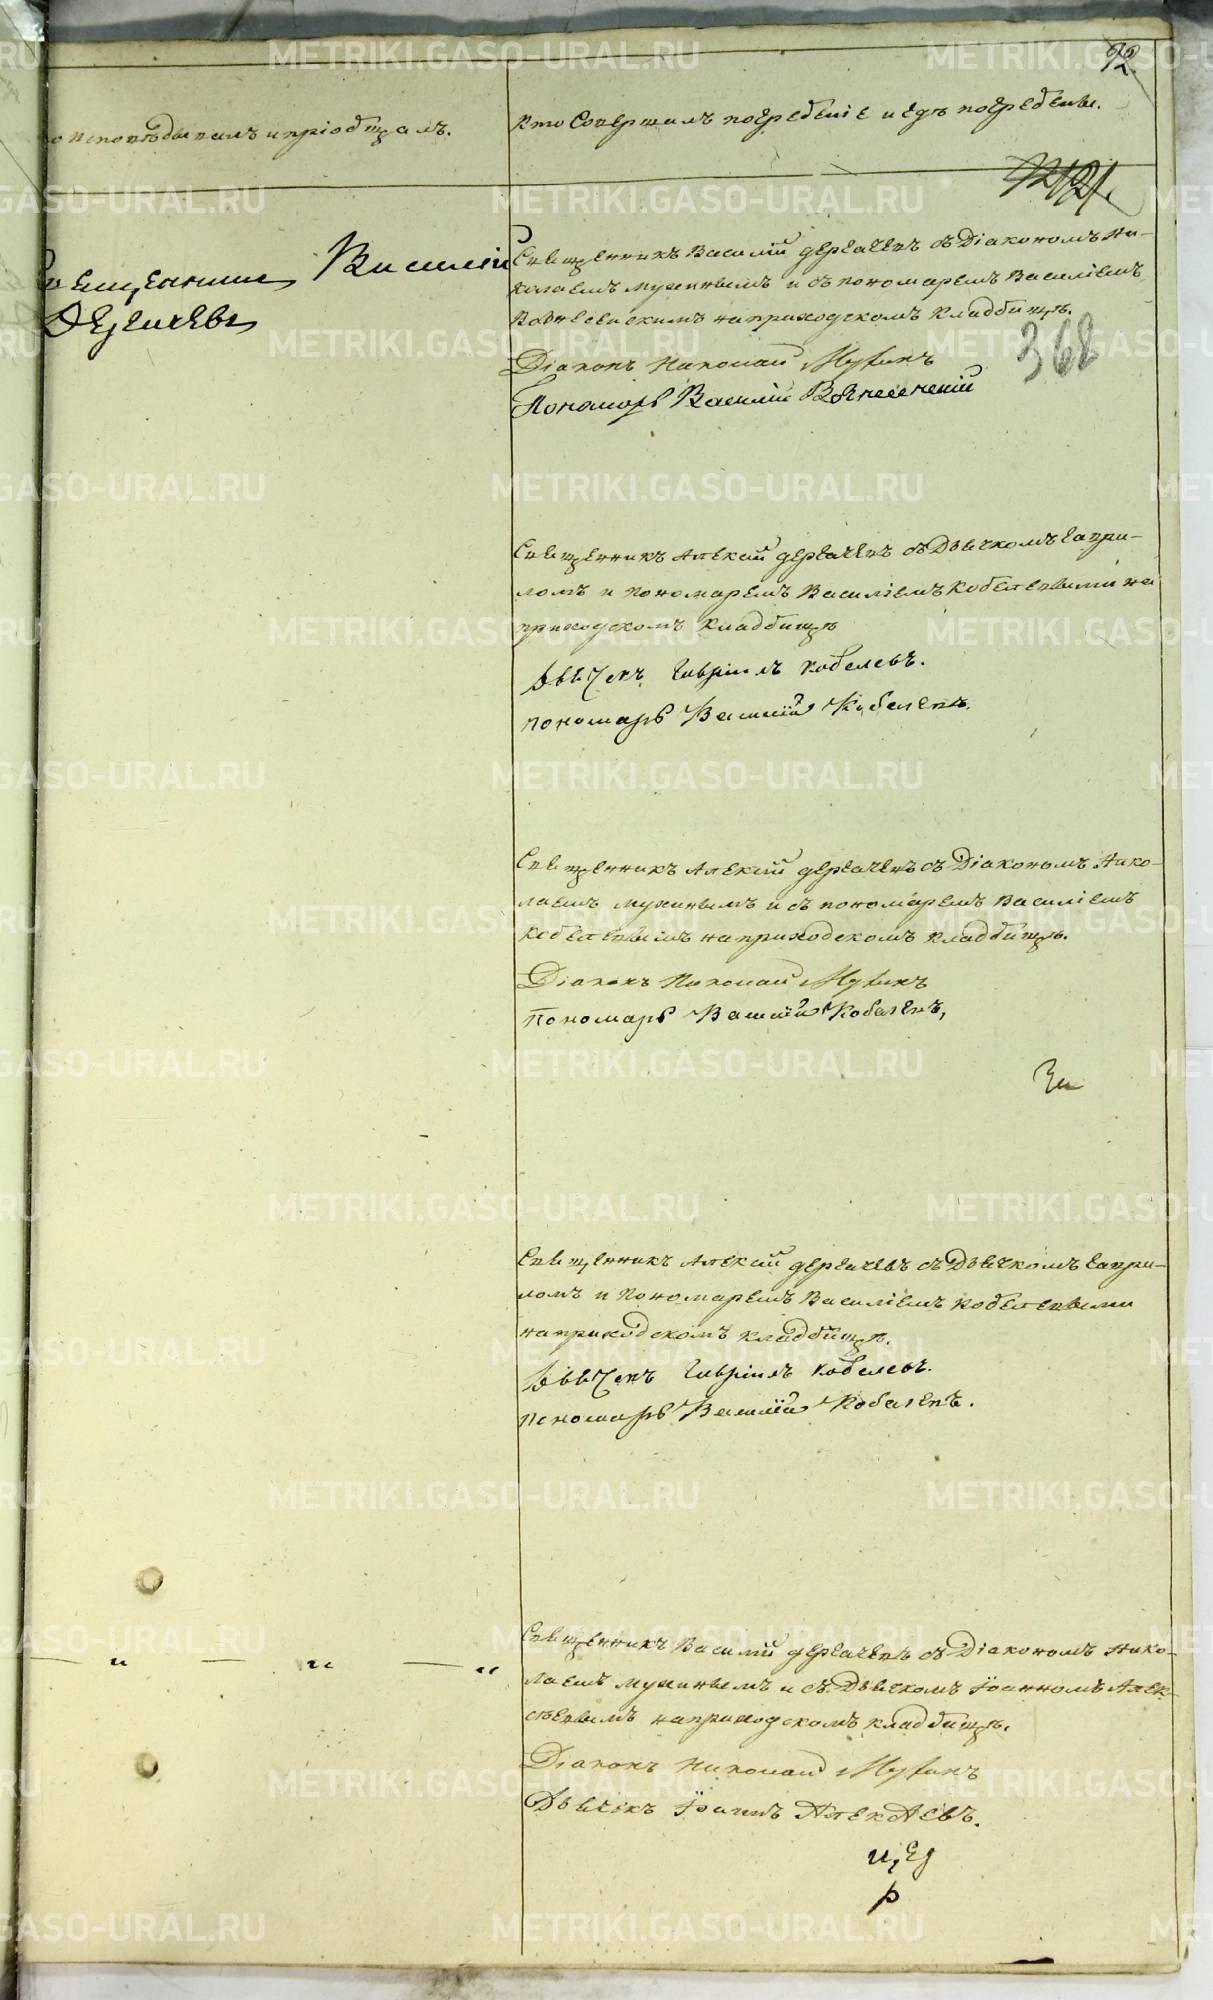 92.
кто исповѣдывалъ и пріобщалъ.
Кто Совершилъ погребеніе и гдѣ погребены.
121.
Священникъ Василій
Дергачевъ
Священникъ Василій Дергачевъ съ Діакономъ Ни-
колаемъ Мухинымъ и съ пономаремъ Василіемъ
Вознесенскимъ на приходскомъ кладбищѣ.
368
Діаконъ Николай Мухинъ
Пономарь Василій Вознесенскій
Священникъ Алексій Дергачевъ съ Дьячкомъ Гаврі-
ломъ и Пономаремъ Василіемъ Кобелевыми на
приходскомъ кладбищѣ
Дьячекъ Гавріилъ Кобелевъ.
пономарь Василій Кобелевъ.
Священникъ Алексій Дергачевъ съ Діакономъ Нико-
лаемъ Мухинымъ и съ пономаремъ Василіемъ
Кобелевымъ на приходскомъ кладбищѣ.
Діаконъ Николай Мухинъ
Пономарь Василій Кобелевъ,
Священникъ Алексій Дергачевъ съ Дьячкомъ Гаврі-
ломъ и Пономаремъ Василіемъ Кобелевыми
на приходскомъ кладбищѣ.
Дьячекъ Гавріилъ Кобелевъ.
пономарь Василій Кобелевъ.
— „ — „ — „
Священникъ Василій Дергачевъ съ Діакономъ Нико-
лаемъ Мухинымъ и съ Дьячкомъ Іоанномъ Алек-
сѣевымъ на приходскомъ кладбищѣ.
Діаконъ Николай Мухинъ
Дьячекъ Іоаннъ Алексѣевъ.
METRIKI.GASO-URAL.RU